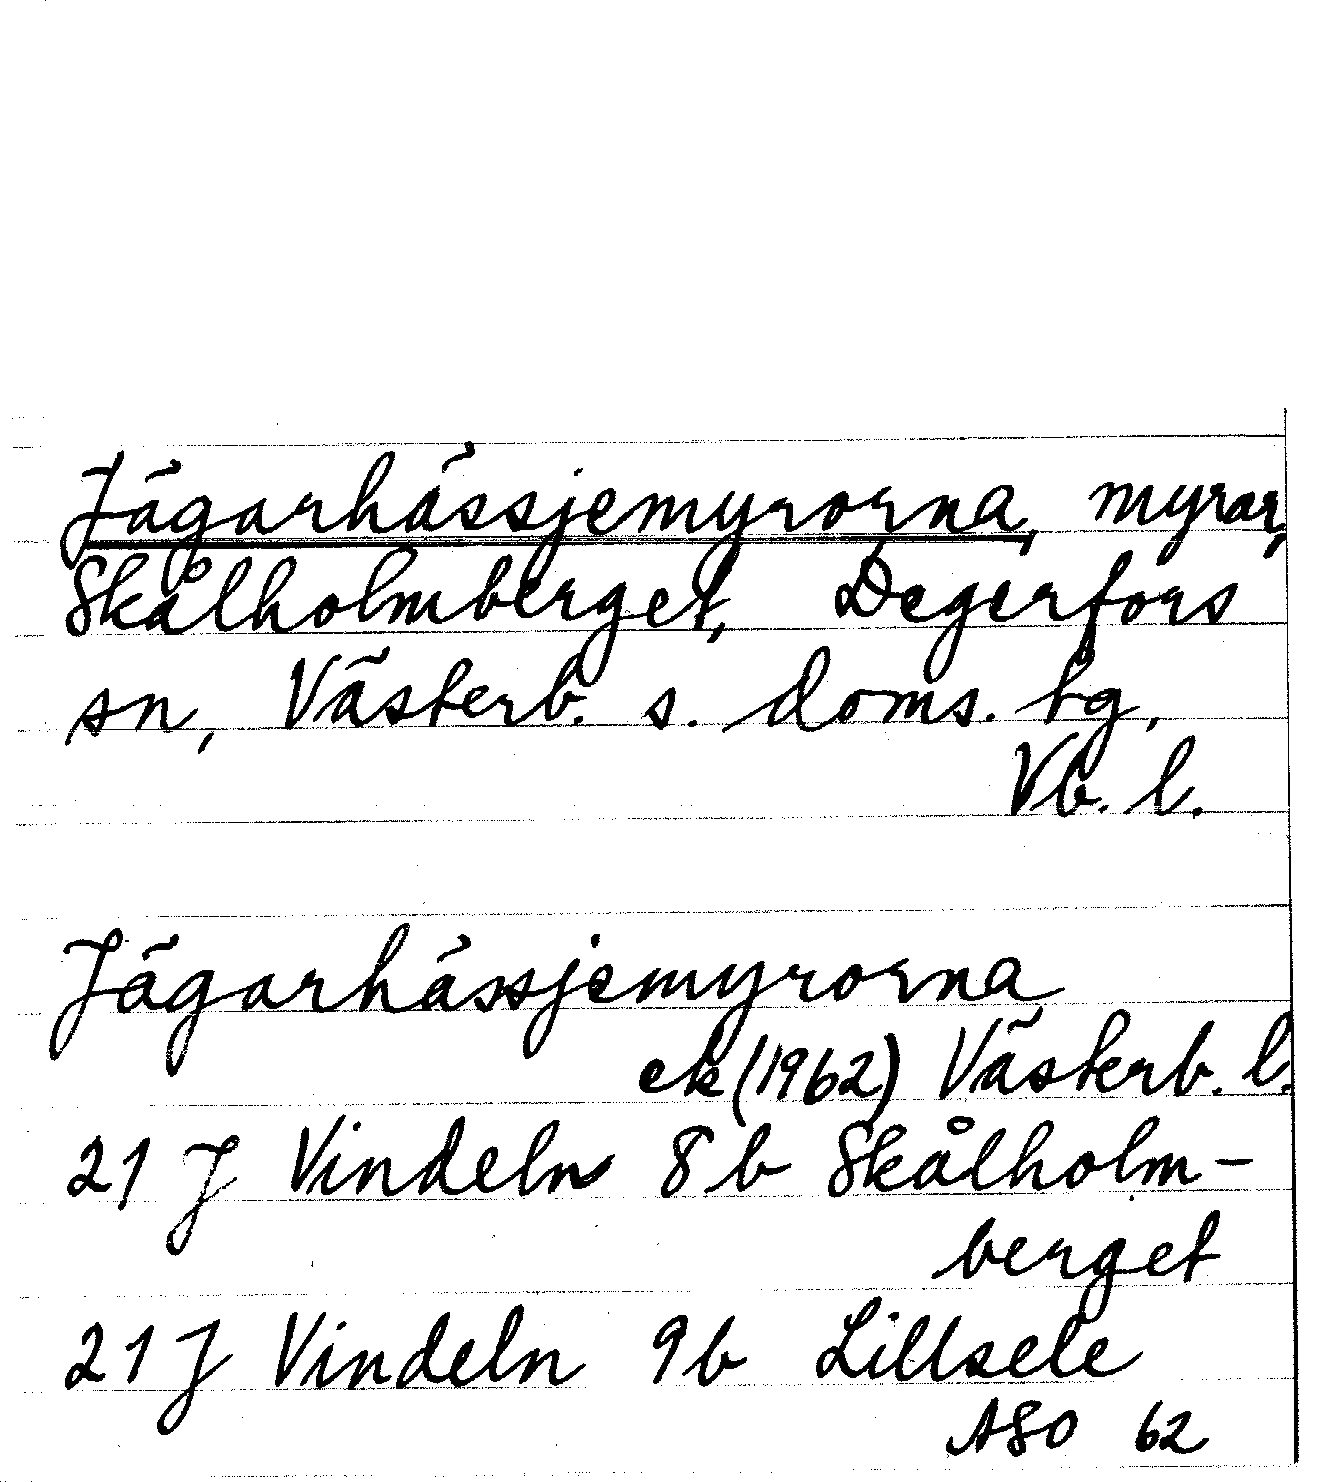 Jägarhässjemyrorna, myrar,
Skålholmberget, Degerfors
sn, Västerb. s. doms. tg,
Vb. l.
Jägarhässjemyrorna
ek (1962) Västerb. l.
21 J Vindeln 8b Skålholm-
berget
21 J Vindeln 9b Lillsele
ASO 62